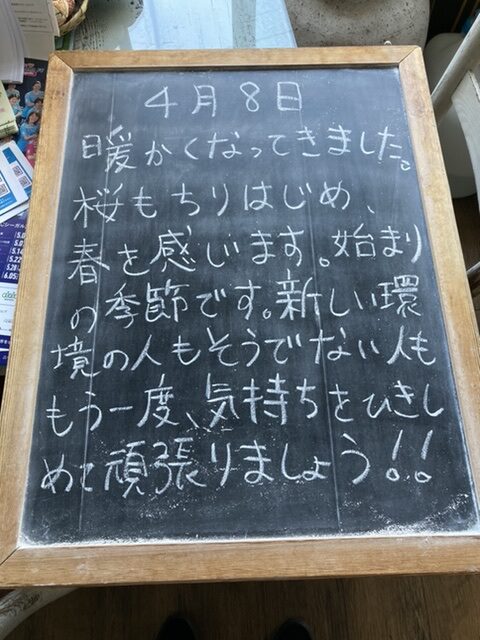 4月8日
暖かくなってきました。
桜もちりはじめ、
春を感じます。始まり
の季節です。新しい環
境の人もそうでない人も
もう一度、気持ちをひきし
めて頑張りましょう!!
5.0
5.14
5.22
5.28
6.05